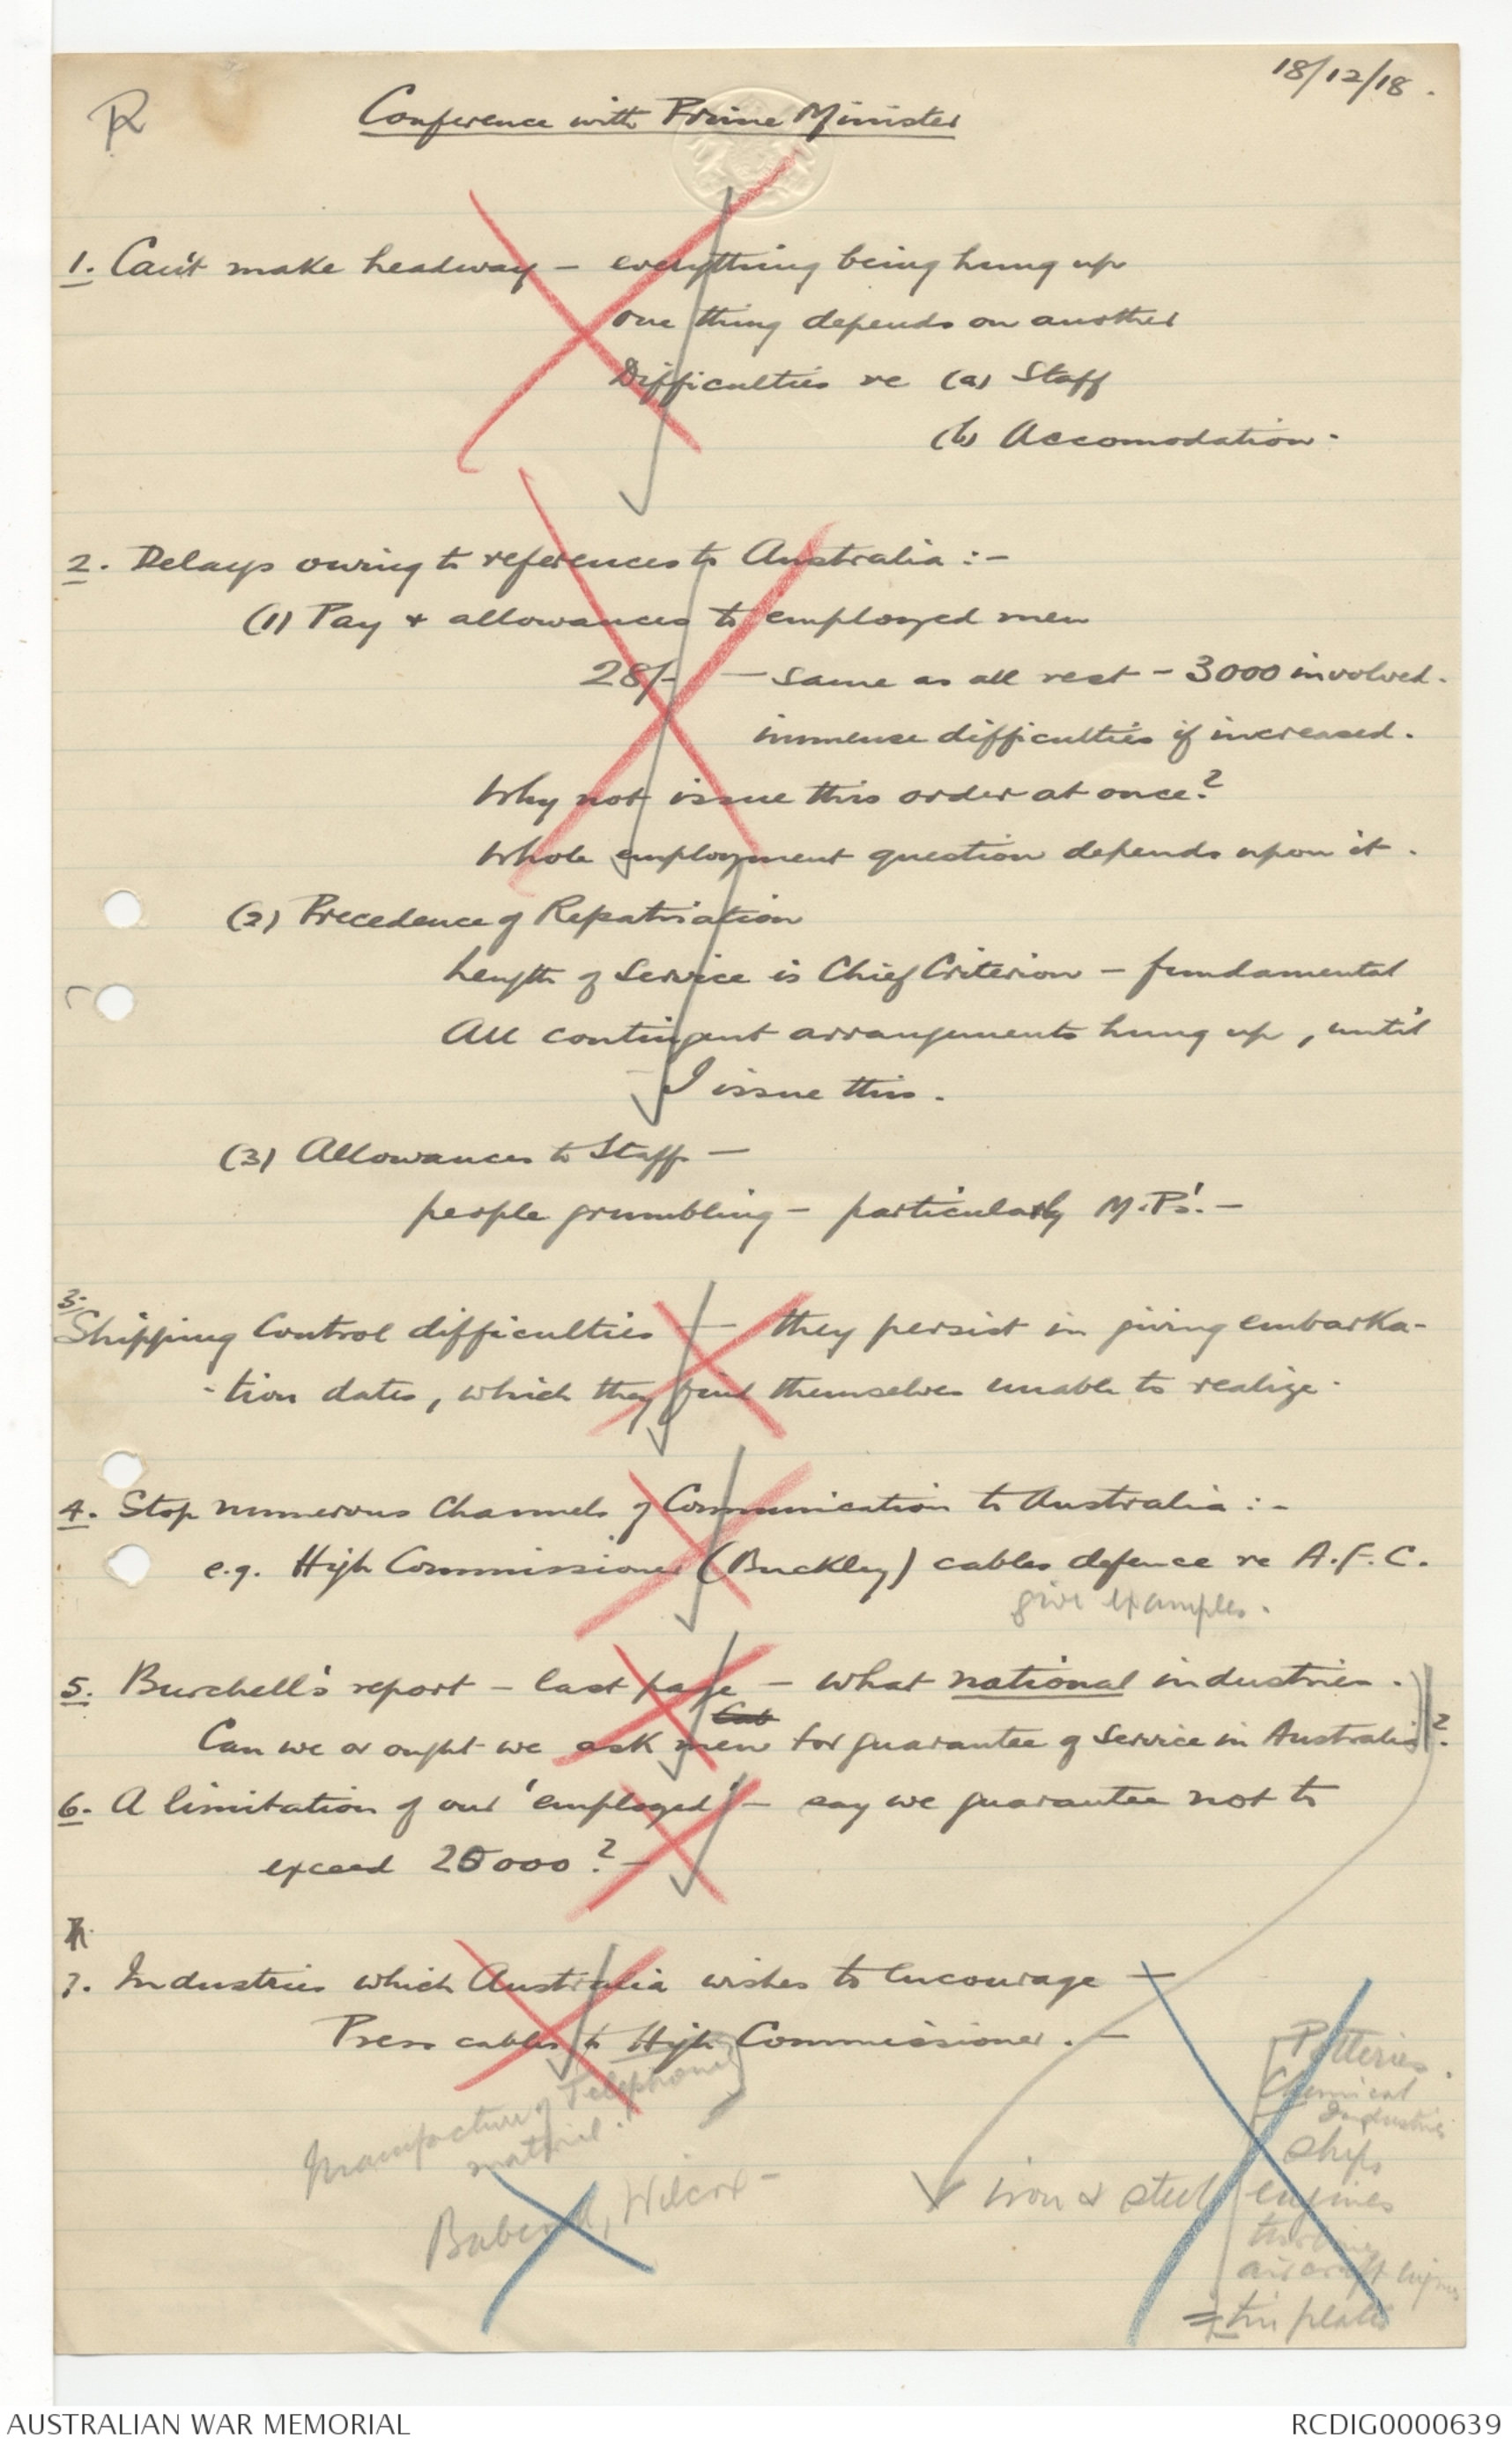 18/12/18.
R
Conference with Prime Minister
1. Can't make headway – everything being hung up
one thing depends on another
Difficulties re (a) Staff
(b) Accomodation.
2. Delays owing to references to Australia :-
(1) Pay + allowances to employed men
28/- – same as all rest – 3000 involved.
immense difficulties if increased.
Why not issue this order at once?
Whole employment question depends upon it.
(2) Precedence of Repatriation
Length of Service is Chief Criterion – fundamental
All contingent arrangements hung up, until
I issue this.
(3) Allowances to Staff –
people grumbling – particularly M.P's. –
3.
Shipping Control difficulties – they persist in giving embarka-
-tion dates, which they find themselves unable to realize.
4. Stop numerous Channels of Communication to Australia :-
e.g. High Commissioner (Buckley) cables defence re A.F.C.
give examples.
5. Burchell's report – last page – what national industries.
Can we or ought we ask men for guarantee of Service in Australia?
6. A limitation of our 'employed' – say we guarantee not to
exceed 25000? –
7. Industries which Australia wishes to encourage –
Press cables to High Commissioner. –
Manufacture of Telephone
material.
Babcock, Wilcox –
iron & steel
Potteries.
Chemical
Industries
ships
engines
turbines
aircraft engines
tin plates
AUSTRALIAN WAR MEMORIAL
RCDIG0000639